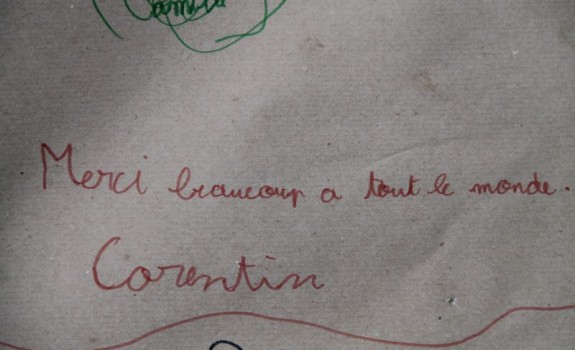 Merci beaucoup a tout le monde.
Corentin